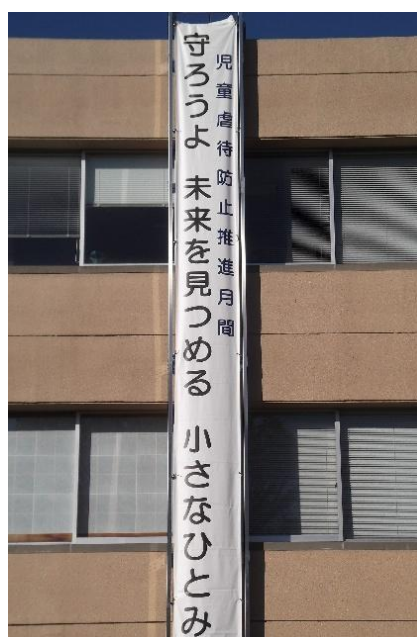 児童虐待防止推進月間
守ろうよ　未来を見つめる　小さなひとみ